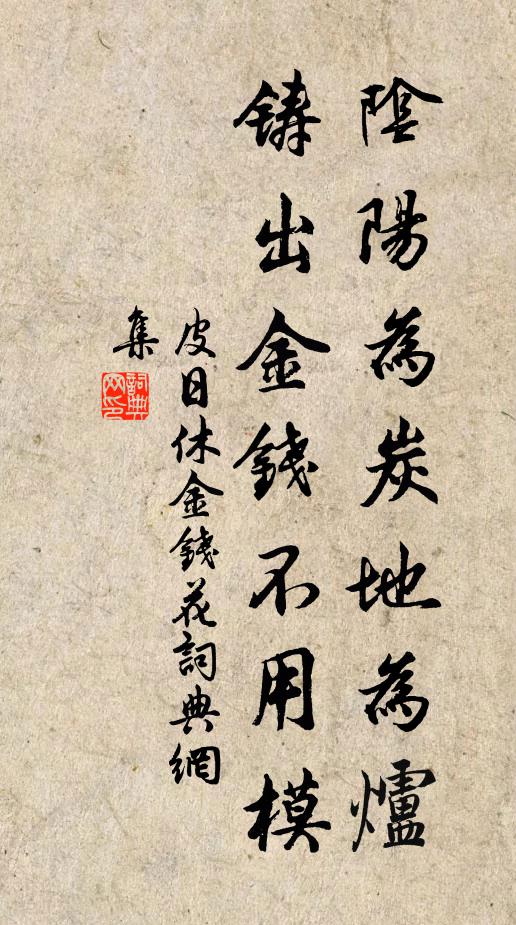 陰陽為炭地為爐
鑄出金錢不用模
皮日休金錢花詞典網
集
詞典网印